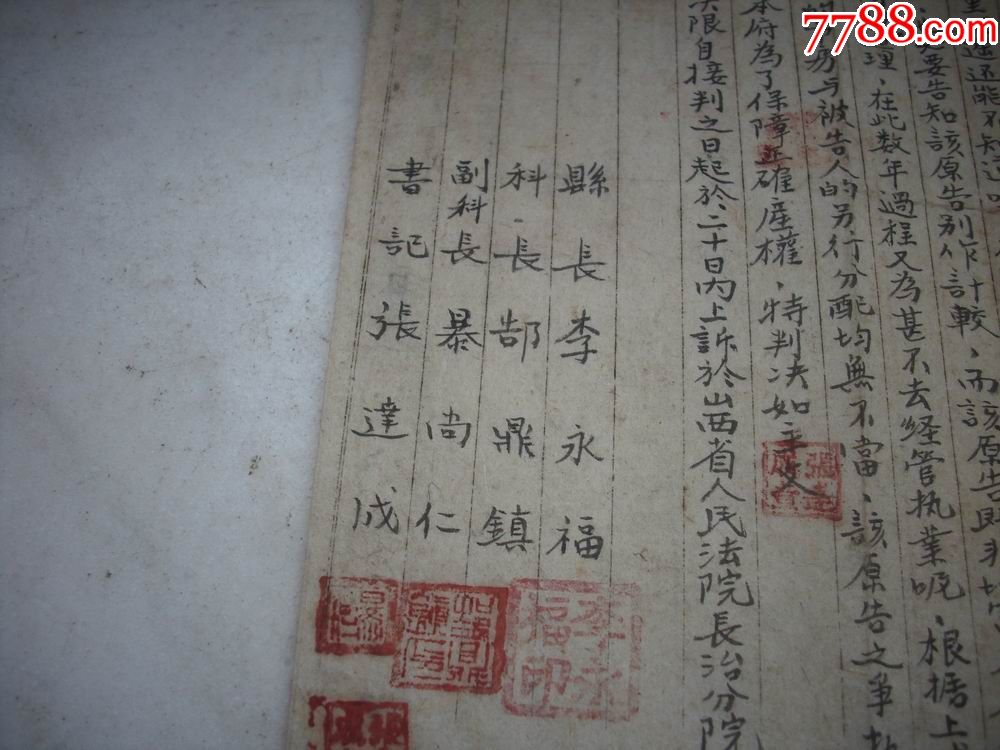 7788.com
还能不知道
要告知該原告别作計較，而該原告即
理，在此数年過程又為甚不去经管执業呢，根据上
房与被告人的另行分配均無不當，該原告之爭
本府為了保障正確産權，特判决如主文
限自接判之日起於二十日内上訴於山西省人民法院長治分院
縣長李永福
科長郜鼎鎮
副科長暴尚仁
書記張達成
李永福印